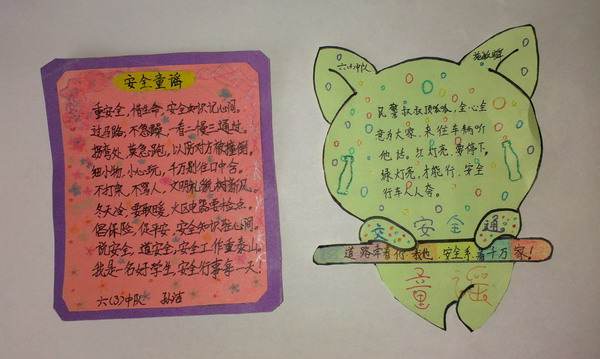 安全童谣
重安全，惜生命，安全知识记心间。
过马路，不急躁，一看二慢三通过。
拐弯处，莫急跑，以防对方被撞倒。
细小物，小心玩，千万别往口中含。
不打架，不骂人，文明礼貌树新风。
冬天冷，要取暖，火区电器要检点。
侣保险，促平安，安全知识驻心间。
说安全，道安全，安全工作重泰山。
我是一名好学生，安全行事每一天！
六(3)中队 孙洁
六(3)中队
民警叔叔顶呱呱，全心全
意为大家，来往车辆听
他话。红灯亮，要停下。
绿灯亮，才能行，安全
行车人人夸。
交安全通
道路牵着你我他，安全系着千万家！
童谣